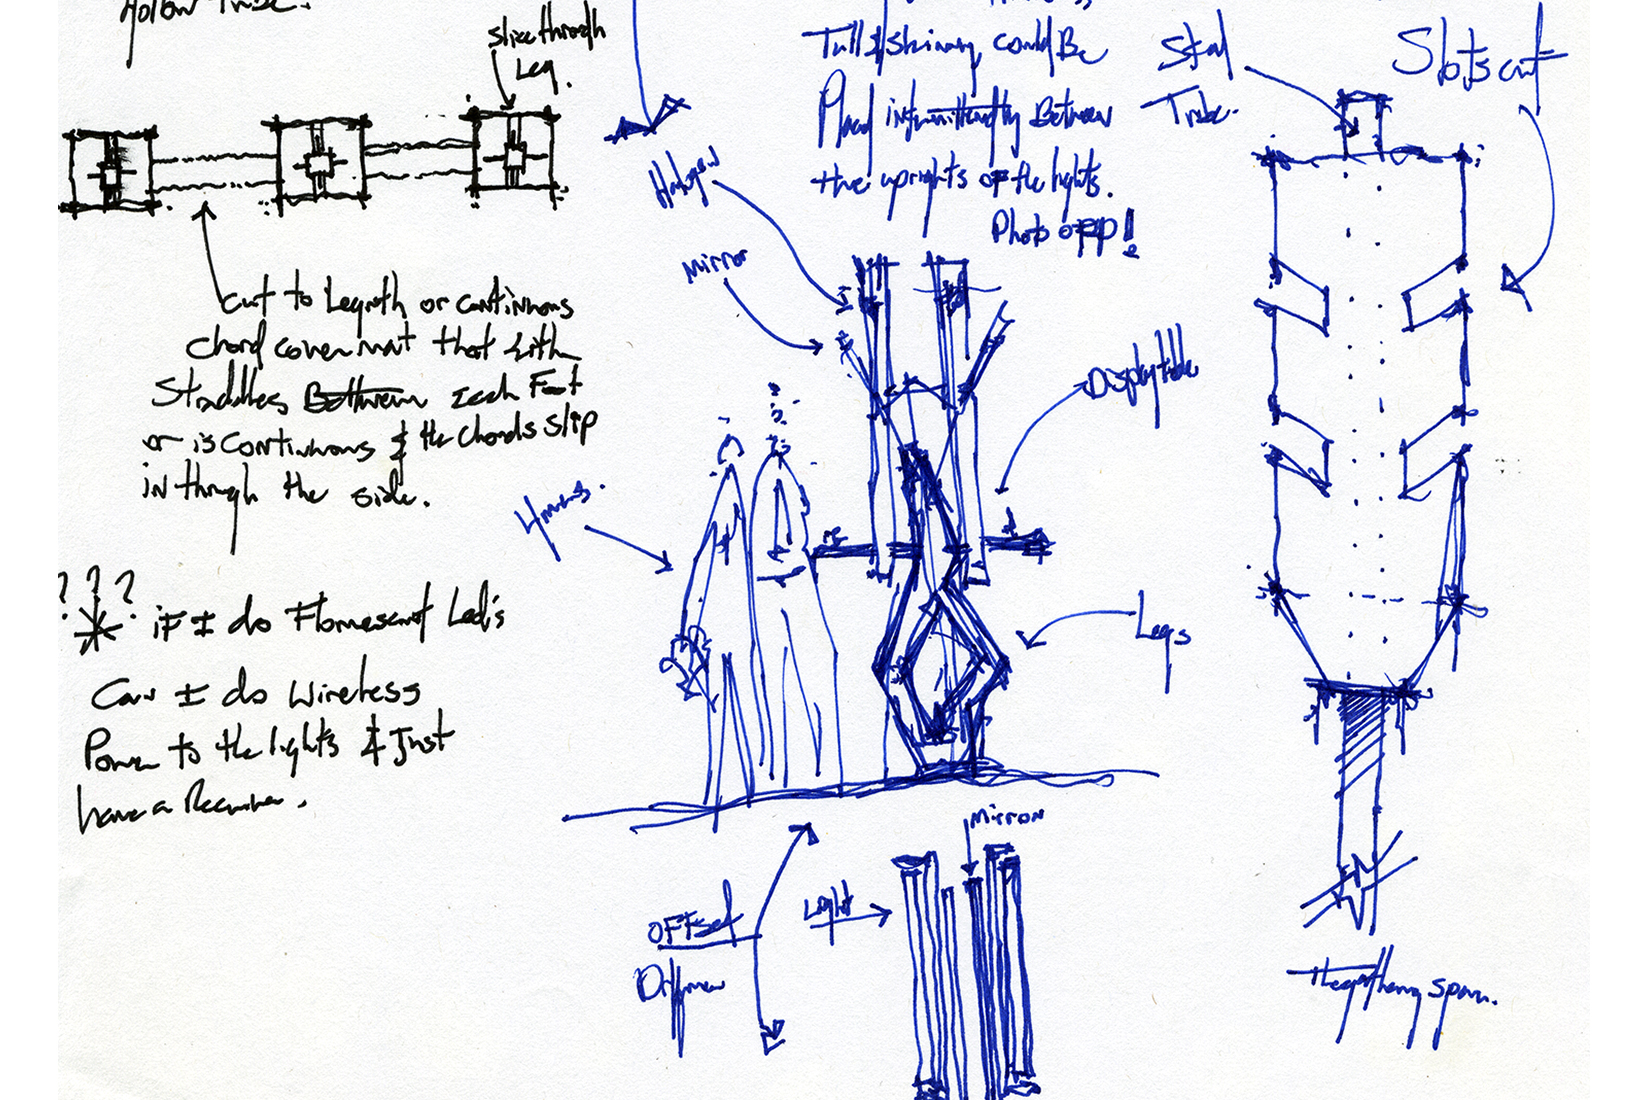 Hollow Tube.
slice through
Leg.
cut to Legnth or continuous
chord cover mat that
Straddles Between Each Foot
or is continuous & the chords slip
in through the side.
???
* if I do Flourescent Led's
Can I do wireless
Power to the lights & Just
have a Receiver.
Tall & skinny, could Be
Placed intermittently Between
the uprights of the lights.
Photo opp!
Halogen
Mirror
Display table
Legs
Mirror
Light
OFFset
Steel
Tube.
Slots cut